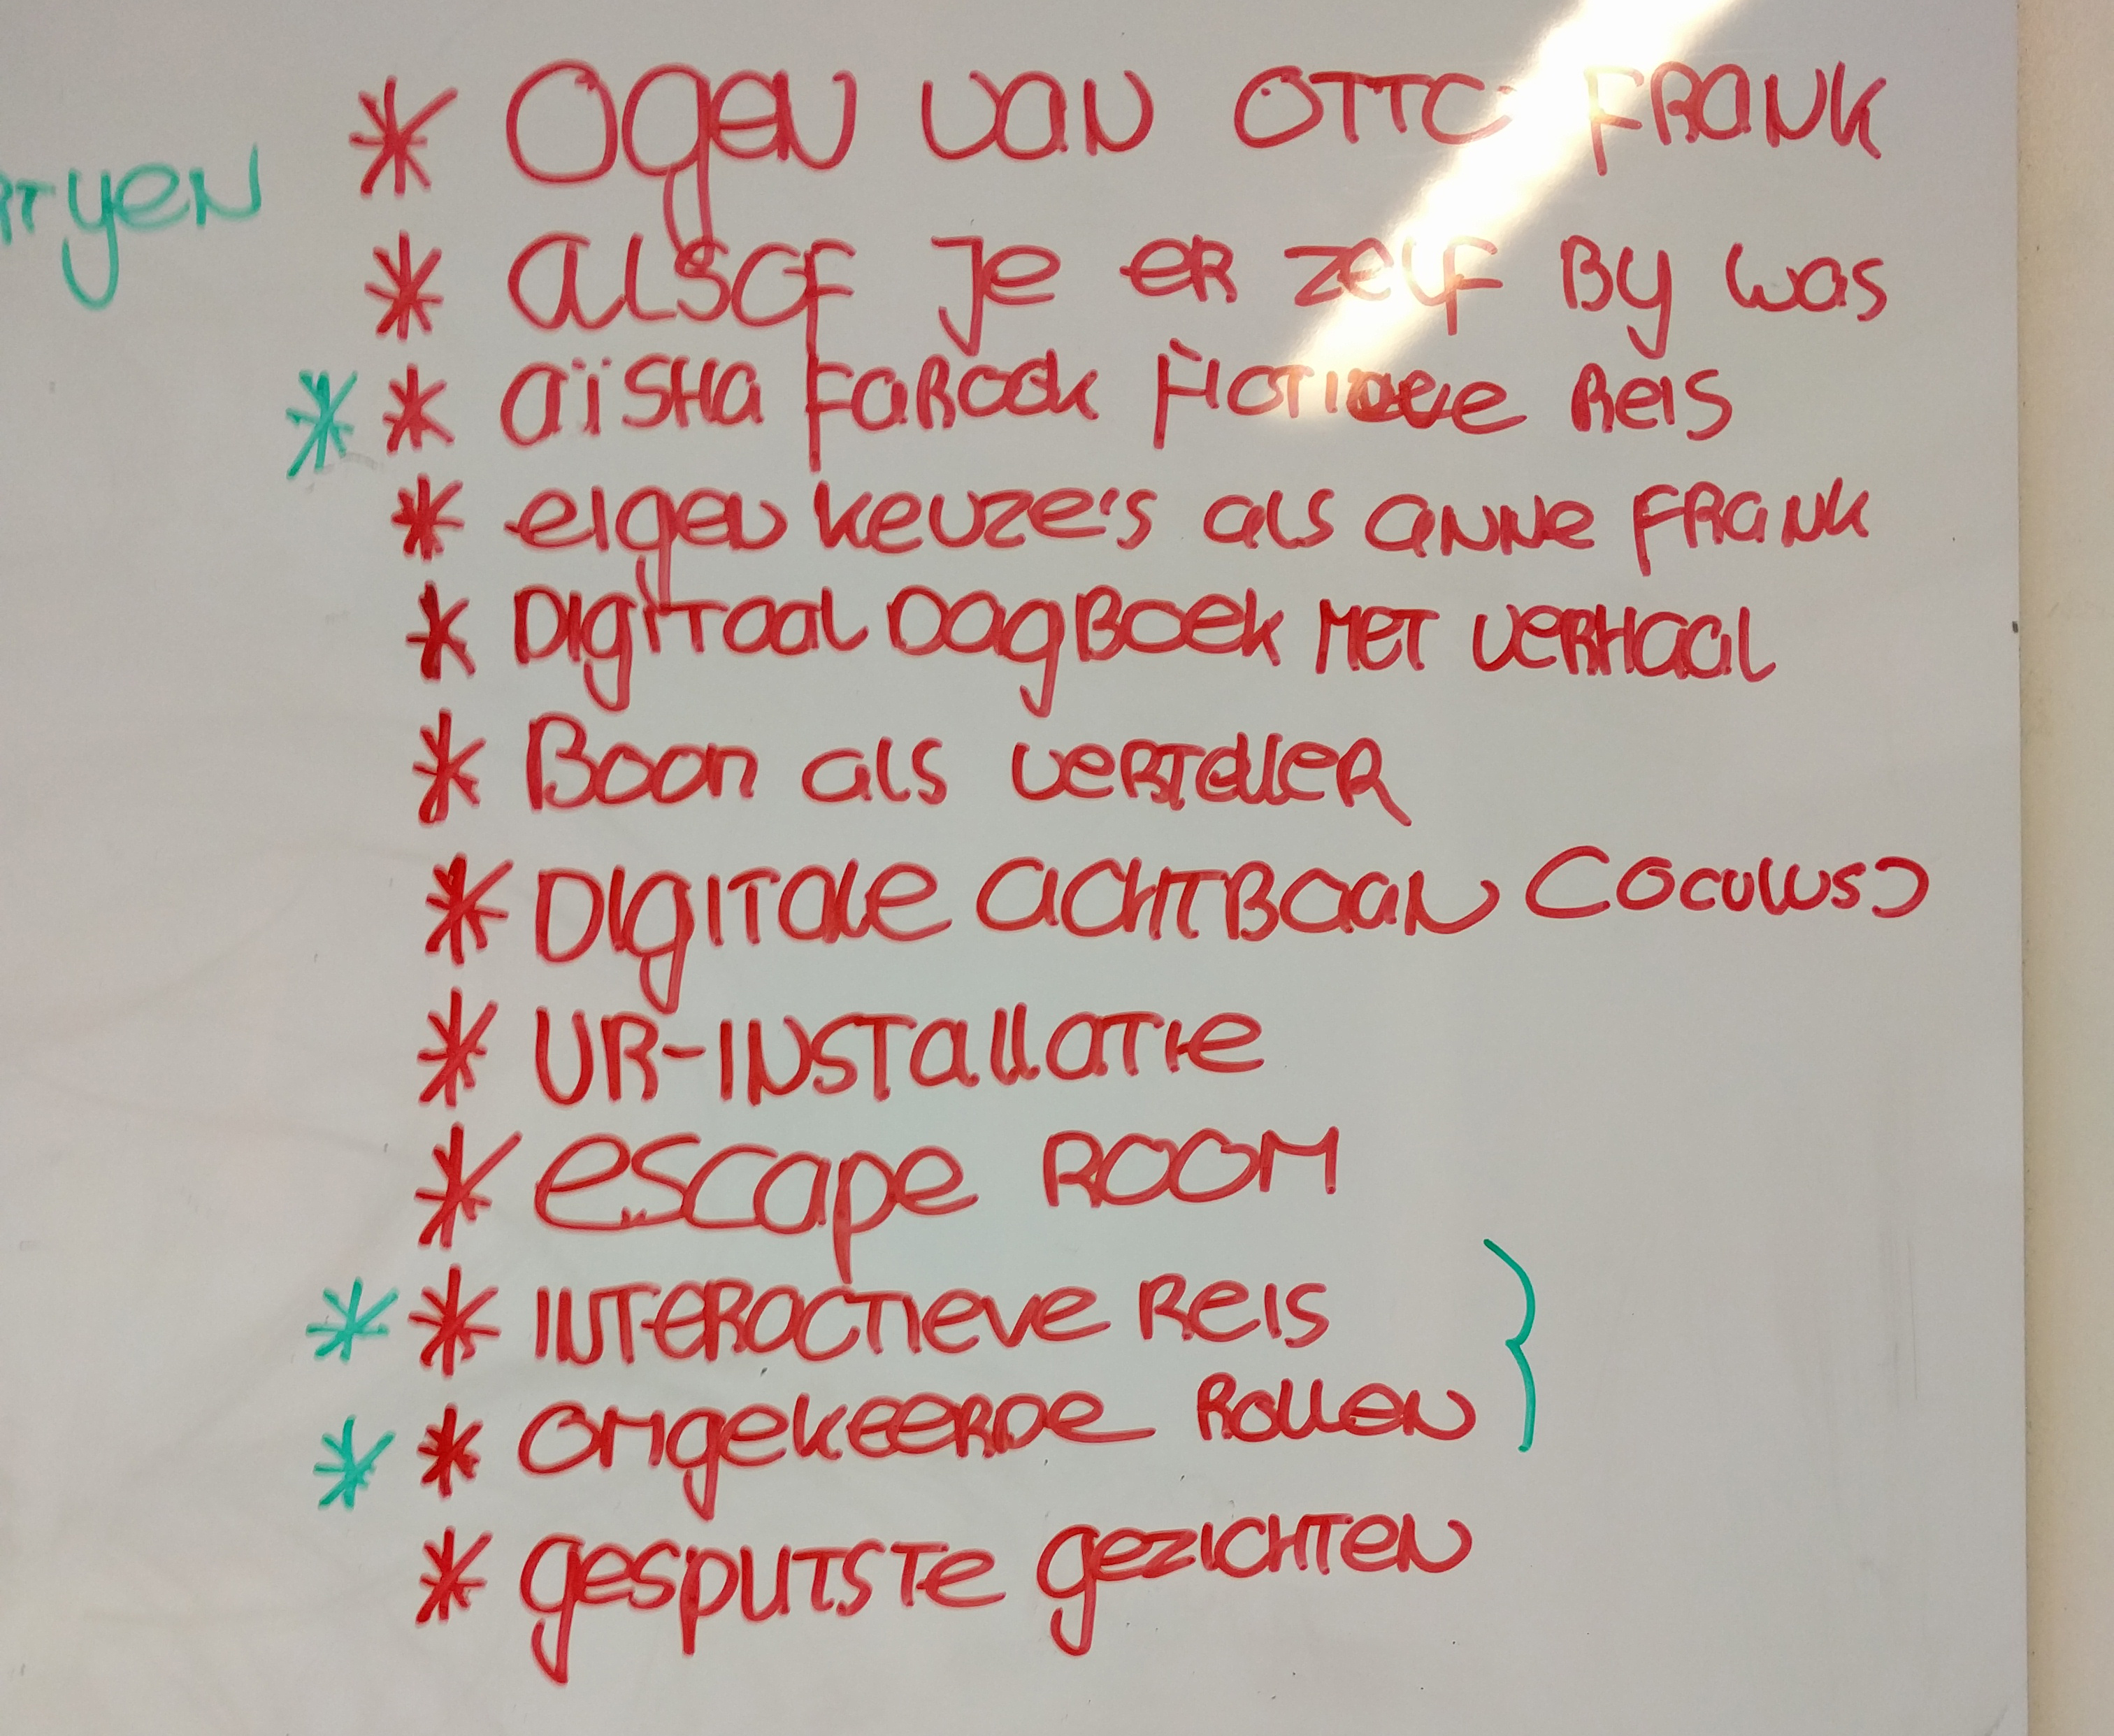 * Ogen van Otto Frank
* Alsof je er zelf by was
* Aïsha Farook Fictieve Reis
* eigen keuze's als Anne Frank
* Digitaal Dagboek met verhaal
* Boom als verteller
* Digitale achtbaan (Oculus)
* VR-installatie
* escape room
* * Interactieve Reis
* * omgekeerde Rollen
* gesputste gezichten